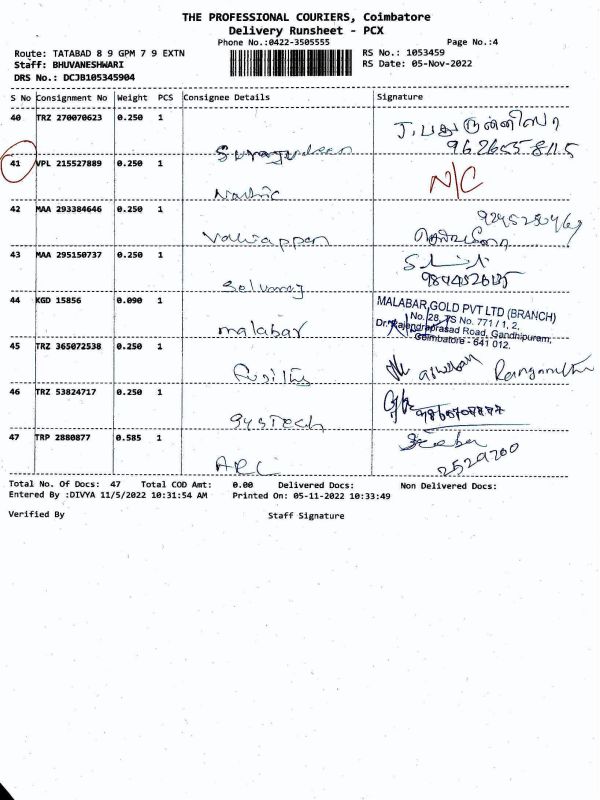 THE PROFESSIONAL COURIERS, Coimbatore
Delivery Runsheet - PCX
Phone No.:0422-3505555 Page No.:4
Route: TATABAD 8 9 GPM 7 9 EXTN RS No.: 1053459
Staff: BHUVANESHWARI RS Date: 05-Nov-2022
DRS No.: DCJB105345904
S No Consignment No Weight PCS Consignee Details Signature
40 TRZ 270070623 0.250 1
41 VPL 215527889 0.250 1 N/C
42 MAA 293384646 0.250 1
Valliappan
43 MAA 295150737 0.250 1
Selvaraj
44 KGD 15856 0.090 1 MALABAR GOLD PVT LTD (BRANCH)
No. 28, TS No. 771 / 1, 2,
Dr. Rajendraprasad Road, Gandhipuram,
Coimbatore - 641 012.
malabar
45 TRZ 365072538 0.250 1
46 TRZ 53824717 0.250 1
47 TRP 2880877 0.585 1
2529200
Total No. Of Docs: 47 Total COD Amt: 0.00 Delivered Docs: Non Delivered Docs:
Entered By :DIVYA 11/5/2022 10:31:54 AM Printed On: 05-11-2022 10:33:49
Verified By Staff Signature